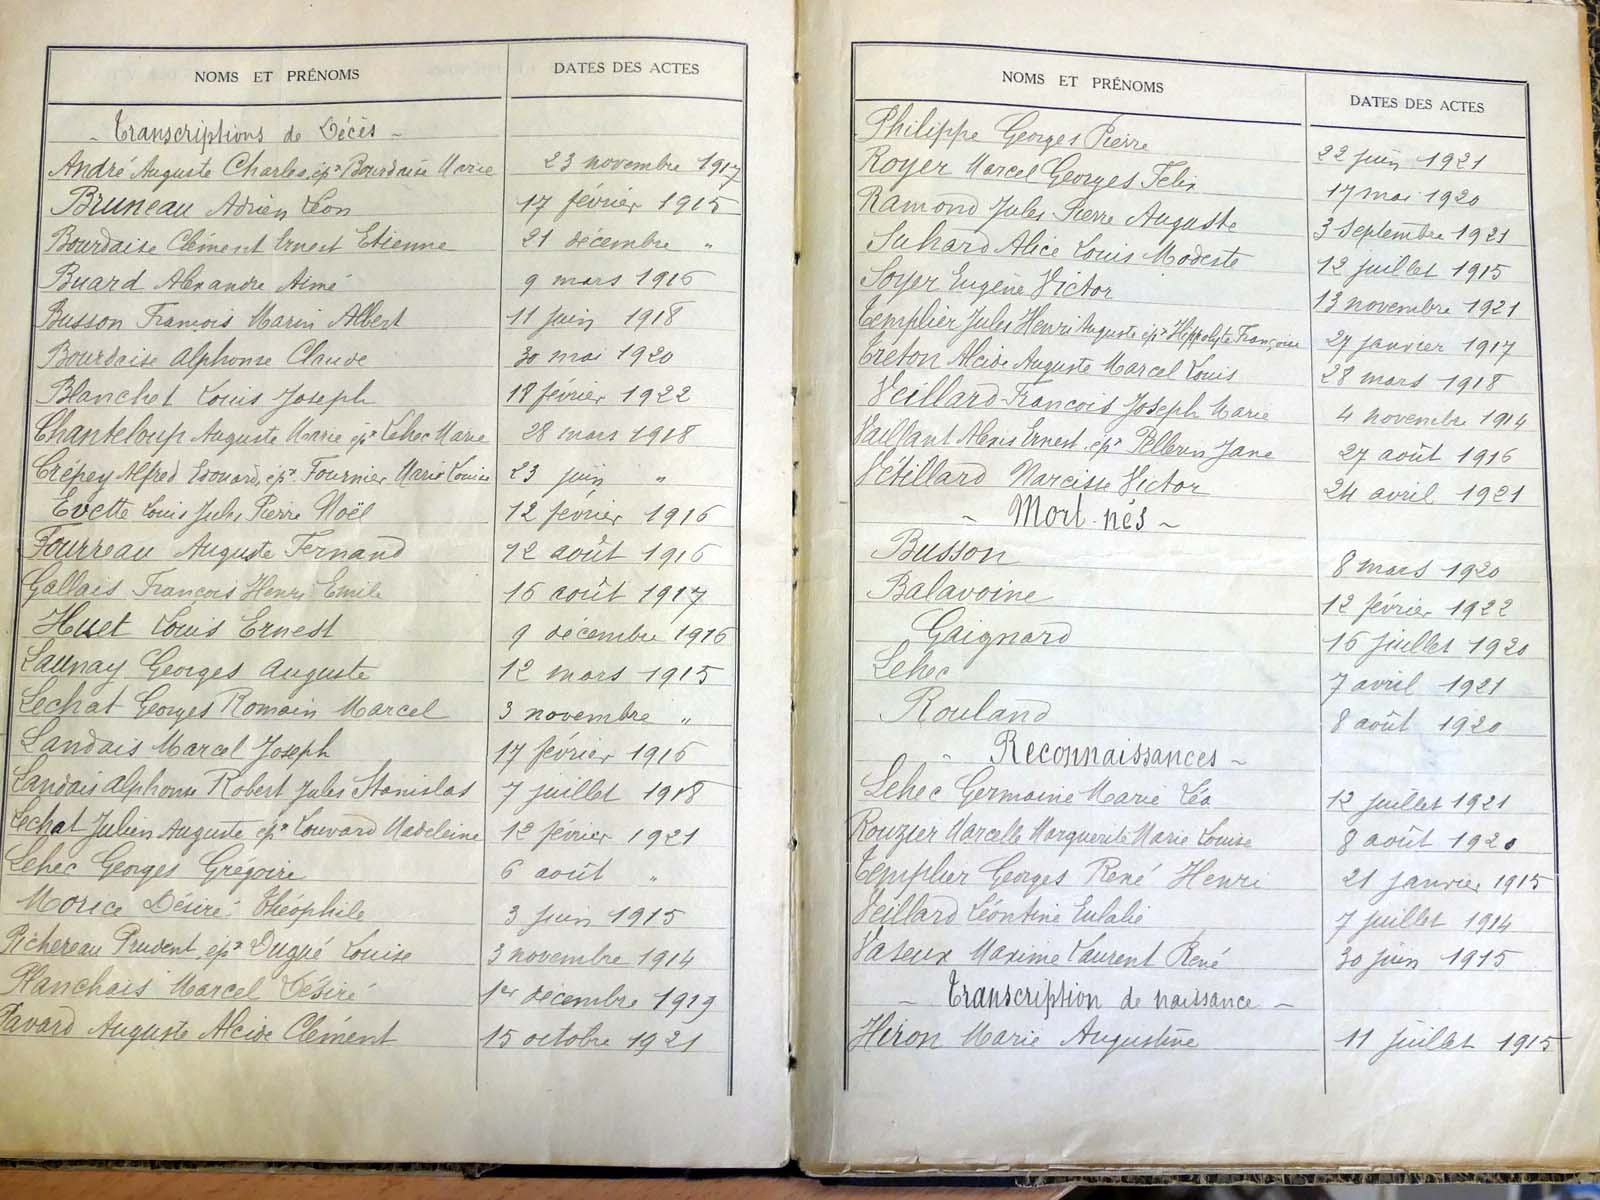 NOMS ET PRÉNOMS DATES DES ACTES
- Transcriptions de Décès -
André Auguste Charles, épx Bourdaise Marie 23 novembre 1917
Bruneau Adrien Léon 17 février 1915
Bourdaise Clément Ernest Etienne 21 décembre "
Buard Alexandre Aimé 9 mars 1916
Busson François Marin Albert 11 juin 1918
Bourdaise Alphonse Claude 30 mai 1920
Blanchet Louis Joseph 18 février 1922
Chanteloup Auguste Marie épx Lehec Marie 28 mars 1918
Crépey Alfred Edouard, épx Fournier Marie Louise 23 juin "
Evette Louis Jules Pierre Noël 12 février 1916
Fourreau Auguste Fernand 12 août 1916
Gallais François Henri Emile 16 août 1917
Huet Louis Ernest 9 décembre 1916
Launay Georges Auguste 12 mars 1915
Lechat Georges Romain Marcel 3 novembre "
Landais Marcel Joseph 17 février 1916
Landais Alphonse Robert Jules Stanislas 7 juillet 1918
Lechat Julien Auguste épx Louvard Madeleine 12 février 1921
Lehec Georges Grégoire 6 août "
Morice Désiré Théophile 3 juin 1915
Pichereau Prudent épx Dugué Louise 3 novembre 1914
Planchais Marcel Désiré 1er décembre 1919
Pavard Auguste Alcide Clément 15 octobre 1921
NOMS ET PRÉNOMS DATES DES ACTES
Philippe Georges Pierre 22 juin 1921
Royer Marcel Georges Felix 17 mai 1920
Ramond Jules Pierre Auguste 3 septembre 1921
Suhard Alice Louis Modeste 12 juillet 1915
Soyer Eugène Victor 13 novembre 1921
Templier Jules Henri Auguste épx Hippolyte Françoise 27 janvier 1917
Treton Alcide Auguste Marcel Louis 28 mars 1918
Veillard François Joseph Marie 4 novembre 1914
Vaillant Alexis Ernest épx Pellerin Jane 27 août 1916
Vétillard Narcisse Victor 24 avril 1921
- Mort-nés -
Busson 8 mars 1920
Balavoine 12 février 1922
Gaignard 16 juillet 1920
Lehec 7 avril 1921
Rouland 8 août 1920
- Reconnaissances -
Lehec Germaine Marie Léa 12 juillet 1921
Rouzier Marcelle Marguerite Marie Louise 8 août 1920
Templier Georges René Henri 21 janvier 1915
Veillard Léontine Eulalie 7 juillet 1914
Vaseux Maxime Laurent René 30 juin 1915
- Transcription de naissance -
Hiron Marie Augustine 11 juillet 1915